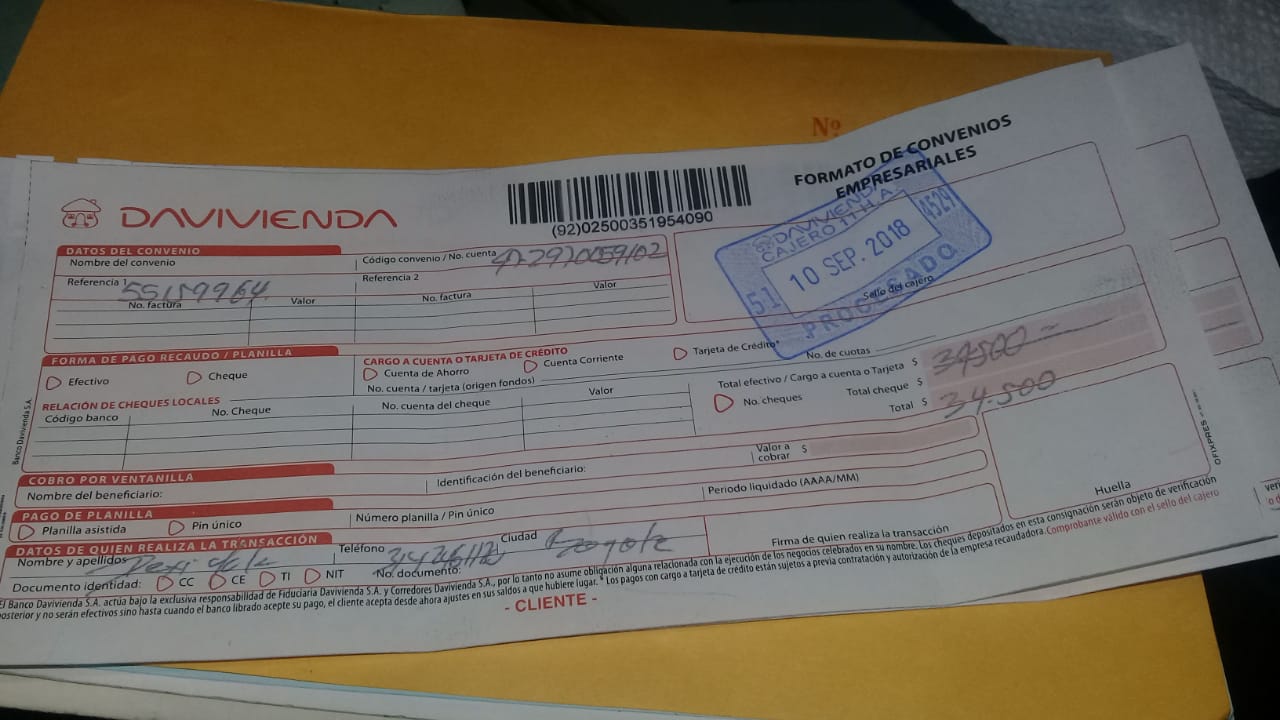 Nº
FORMATO DE CONVENIOS
EMPRESARIALES
DAVIVIENDA
(92)02500351954090
DAVIVIENDA
CAJERO 11 H.A.
51 10 SEP. 2018 4529
PROCESADO
Sello del cajero
DATOS DEL CONVENIO
Nombre del convenio Código convenio / No. cuenta
Referencia 1 55159964 Referencia 2
No. factura Valor No. factura Valor
FORMA DE PAGO RECAUDO / PLANILLA
Efectivo Cheque
CARGO A CUENTA O TARJETA DE CRÉDITO
Cuenta de Ahorro Cuenta Corriente Tarjeta de Crédito* No. de cuotas
No. cuenta / tarjeta (origen fondos)
Total efectivo / Cargo a cuenta o Tarjeta $ 34500
RELACIÓN DE CHEQUES LOCALES
Código banco No. Cheque No. cuenta del cheque Valor
No. cheques Total cheque $
Total $ 34.500
COBRO POR VENTANILLA
Nombre del beneficiario: Identificación del beneficiario: Valor a cobrar $
PAGO DE PLANILLA
Planilla asistida Pin único Número planilla / Pin único Periodo liquidado (AAAA/MM)
DATOS DE QUIEN REALIZA LA TRANSACCIÓN
Nombre y apellidos Teléfono Ciudad Bogota
Documento identidad: CC CE TI NIT No. documento:
Firma de quien realiza la transacción
Huella
El Banco Davivienda S.A. actúa bajo la exclusiva responsabilidad de Fiduciaria Davivienda S.A. y Corredores Davivienda S.A., por lo tanto no asume obligación alguna relacionada con la ejecución de los negocios celebrados en su nombre. Los cheques depositados en esta consignación serán objeto de verificación
posterior y no serán efectivos sino hasta cuando el banco librado acepte su pago, el cliente acepta desde ahora ajustes en sus saldos a que hubiere lugar. * Los pagos con cargo a tarjeta de crédito están sujetos a previa contratación y autorización de la empresa recaudadora. Comprobante válido con el sello del cajero
- CLIENTE -
Banco Davivienda S.A.
OFIXPRES